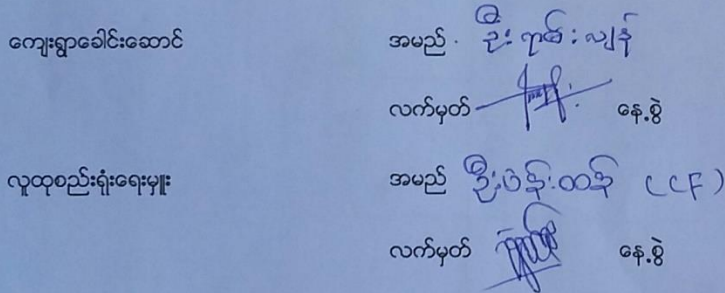 ကျေးရွာခေါင်းဆောင် အမည် ဦးရာမ်းလျန်
လက်မှတ် နေ့စွဲ
လူထုစည်းရုံးရေးမှူး အမည် ဦးပဲန်းထန် (CCF)
လက်မှတ် နေ့စွဲ